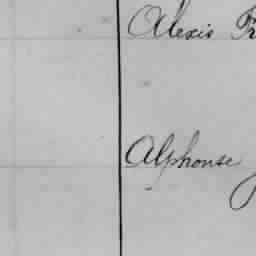 Alexis
Alphonse